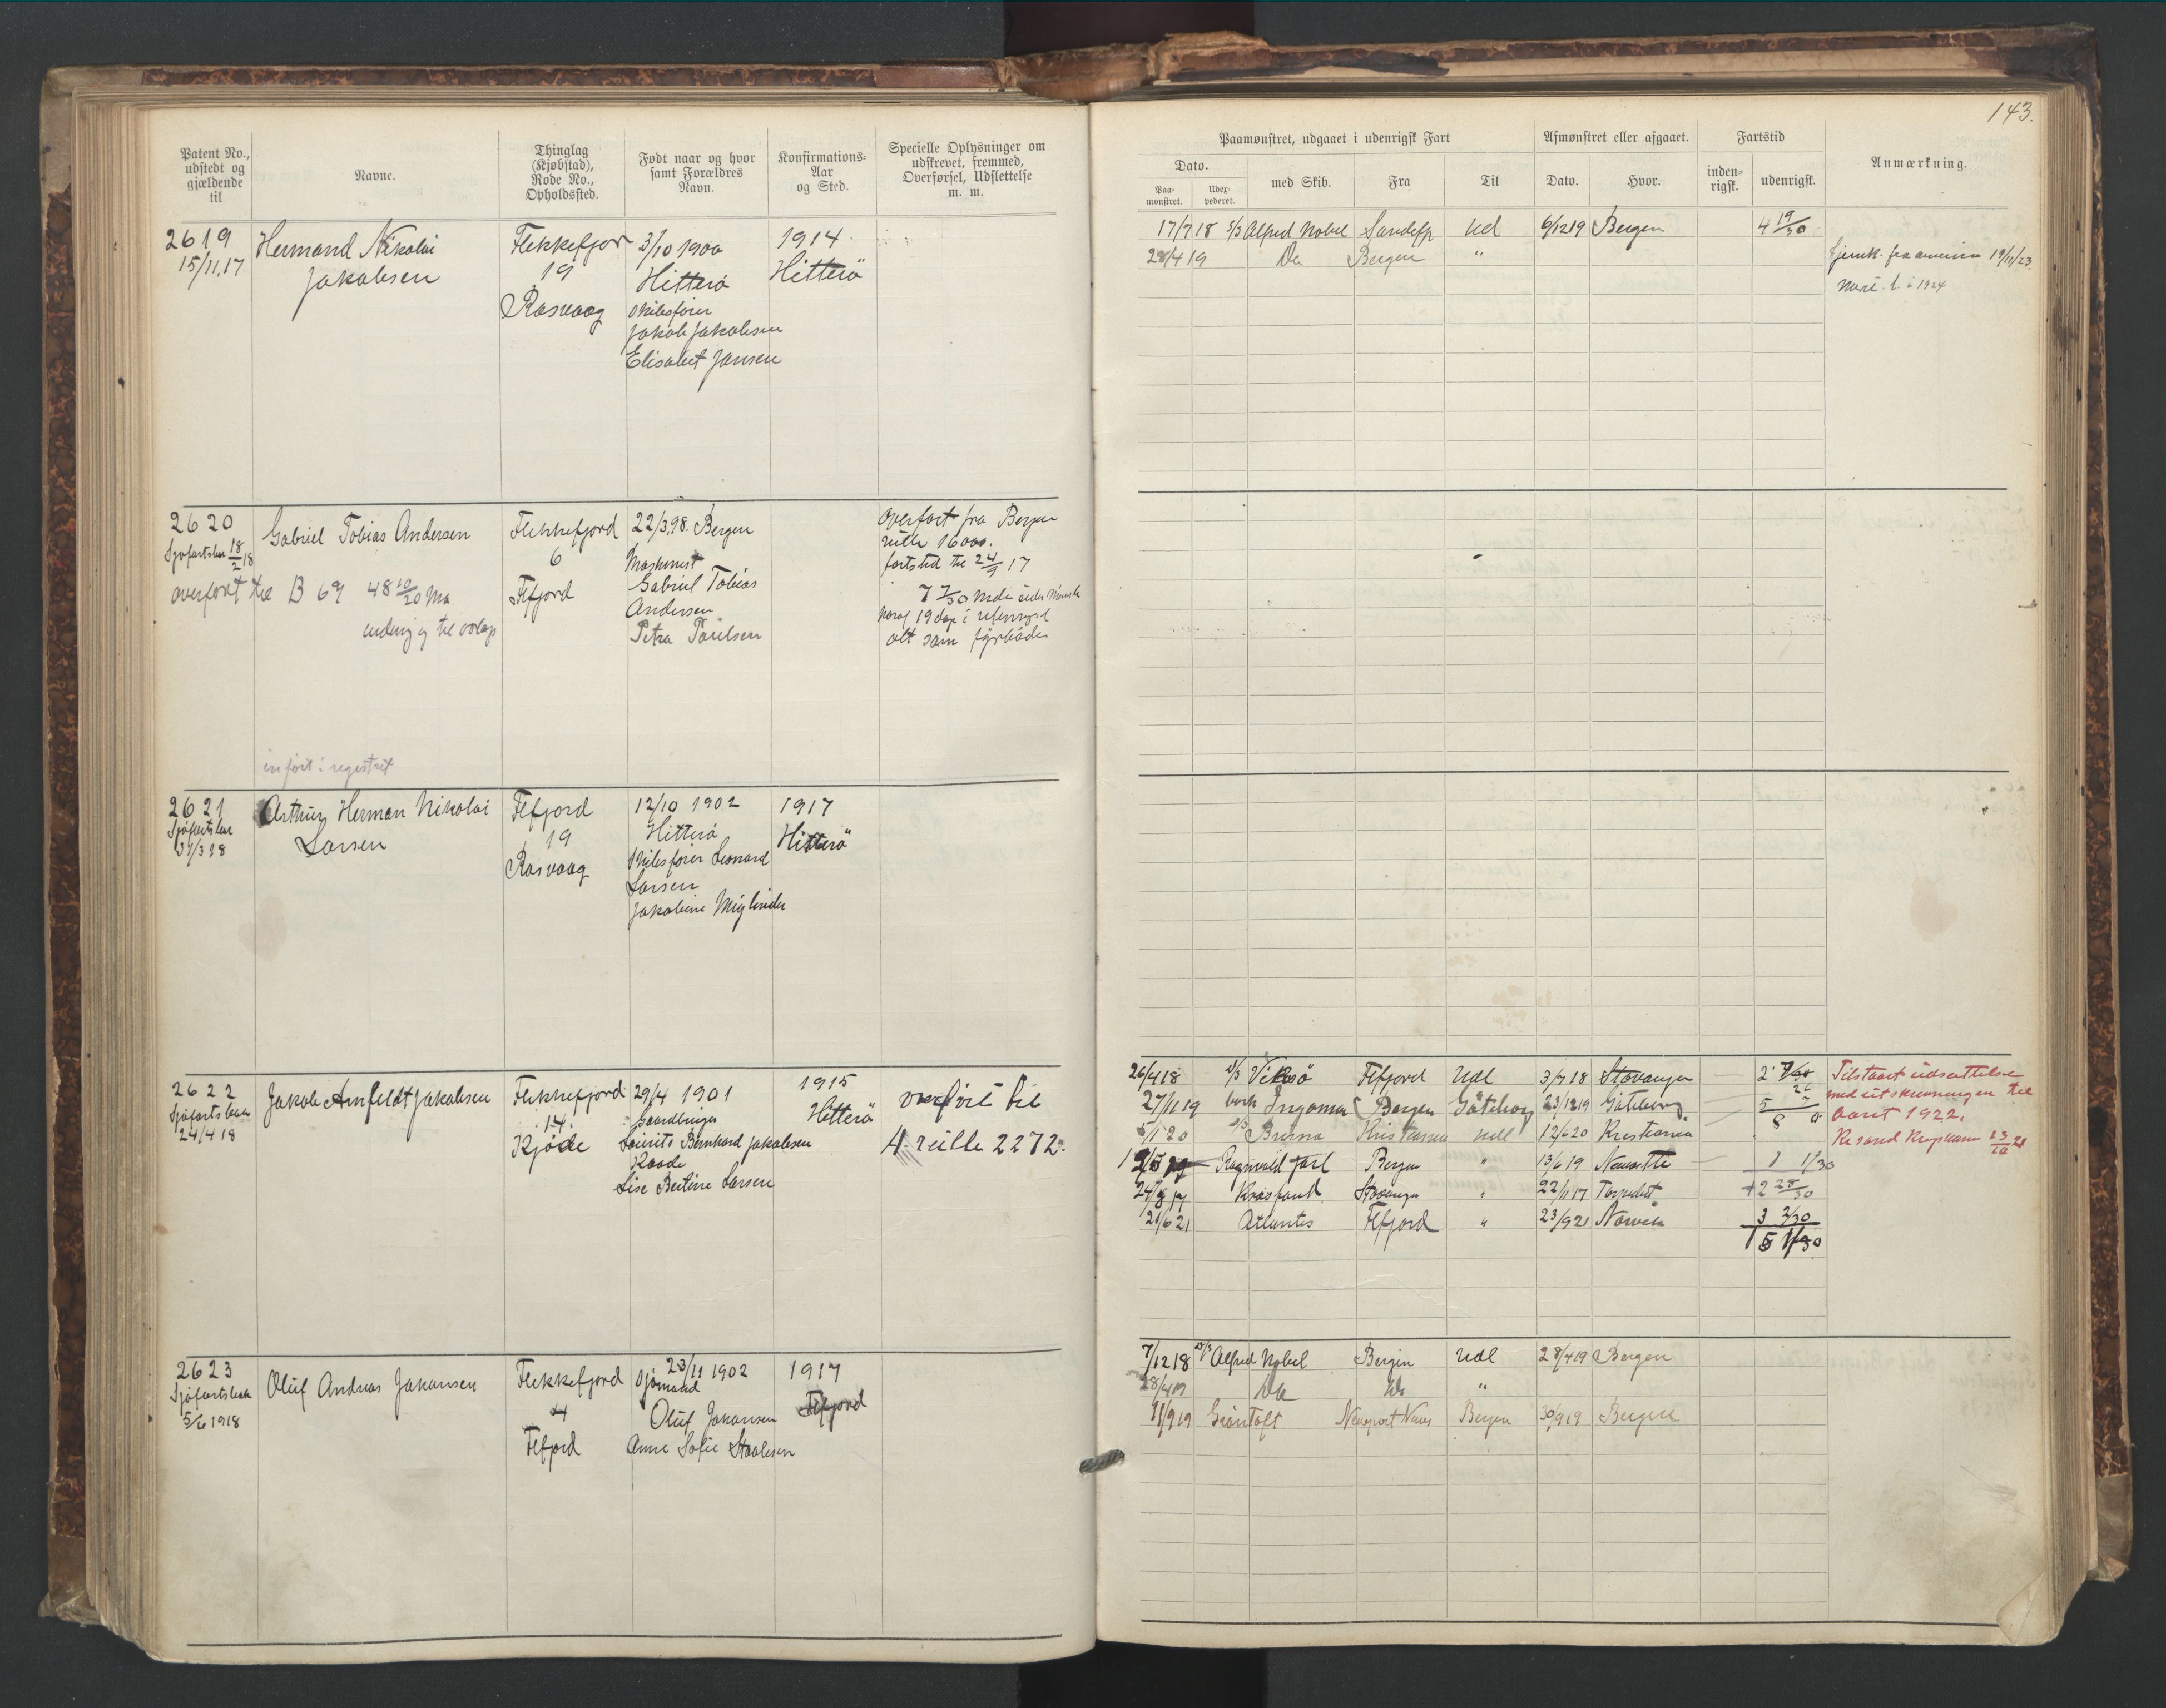 143.
Patent No., udstedt og gjældende til
Navne.
Thinglag (Kjøbstad), Rode No., Opholdssted.
Født naar og hvor samt Forældres Navn.
Konfirmations-Aar og Sted.
Specielle Oplysninger om udskrevet, fremmed, Overførsel, Udslettelse m. m.
Paamønstret, udgaaet i udenrigsk Fart
Afmønstret eller afgaaet.
Fartstid
Anmærkning.
Dato.
med Skib.
Fra
Til
Dato.
Hvor.
inden-rigsk.
udenrigsk.
Paa-mønstret.
2619
15/11.17
Hermand Nikolai
Jakobsen
Flekkefjor
19
Rasvaag
3/10 1900
Hitterö
Skibsfører
Jakob Jakobsen
Elisabet Jansen
1914
Hitterö
17/7 18 Alfred Nobel Sandefj Ud 6/12 19 Bergen 4 19/30
28/4 19 Do Bergen "
Hjemk. fra amerika 19/11/23
2620
Sjøfartsbok 18/2 18
Gabriel Tobias Andersen
Flekkefjord
6
Ffjord
22/3.98. Bergen
Maskinist
Gabriel Tobias
Andersen
Petra Paulsen
overført fra Bergen
rulle 16000.
fartstid til 24/9 17
7 7/30 mdr
horaf 19 dage i
alt som fyrbøder
overført til B 69 48 10/20 Ma
indført i registret
2621
Sjøfartsbok
Arthur Herman Nikolai
Larsen
Ffjord
19
Rasvaag
12/10 1902
Hitterö
Skibsfører Leonard
Larsen
Jakobine
1917
Hitterö
2622
Sjøfartsbok
24/4 18
Jakob Arnfeldt Jakobsen
Flekkefjord
14
Kjöde
29/4 1901
Gaardbruger
Bernhard Jakobsen
Lise Bertine Larsen
1915
Hitterö
overført til
A. rulle 2272.
26/4 18 Viksö Ffjord Udl 3/7 18 Stavanger
27/11 19 bark Ingomar Bergen Göteborg 23/12 19 Göteborg
5/1 20 Kristiania Udl 12/6 20 Kristiania
Ragnvald Jarl Bergen " 13/6 19 1 1/30
Stavanger " 22/11 17 2 28/30
21/6 21 Atlantis Ffjord " 23/9 21 Narvik 3 2/30
Tilstaaet udsættelse
med utskrivningen til
aaret 1922.
2623
Sjøfartsbok
5/6 1918
Oluf Andreas Johansen
Flekkefjord
4
Ffjord
23/11 1902
Sjømand
Oluf Johansen
Anne Sofie Staalesen
1917
Ffjord
7/12 18 Alfred Nobel Bergen Udl 28/4 19 Bergen
28/4 19 Do do "
11/9 19 Grøntoft Newport News Bergen 30/9 19 Bergen